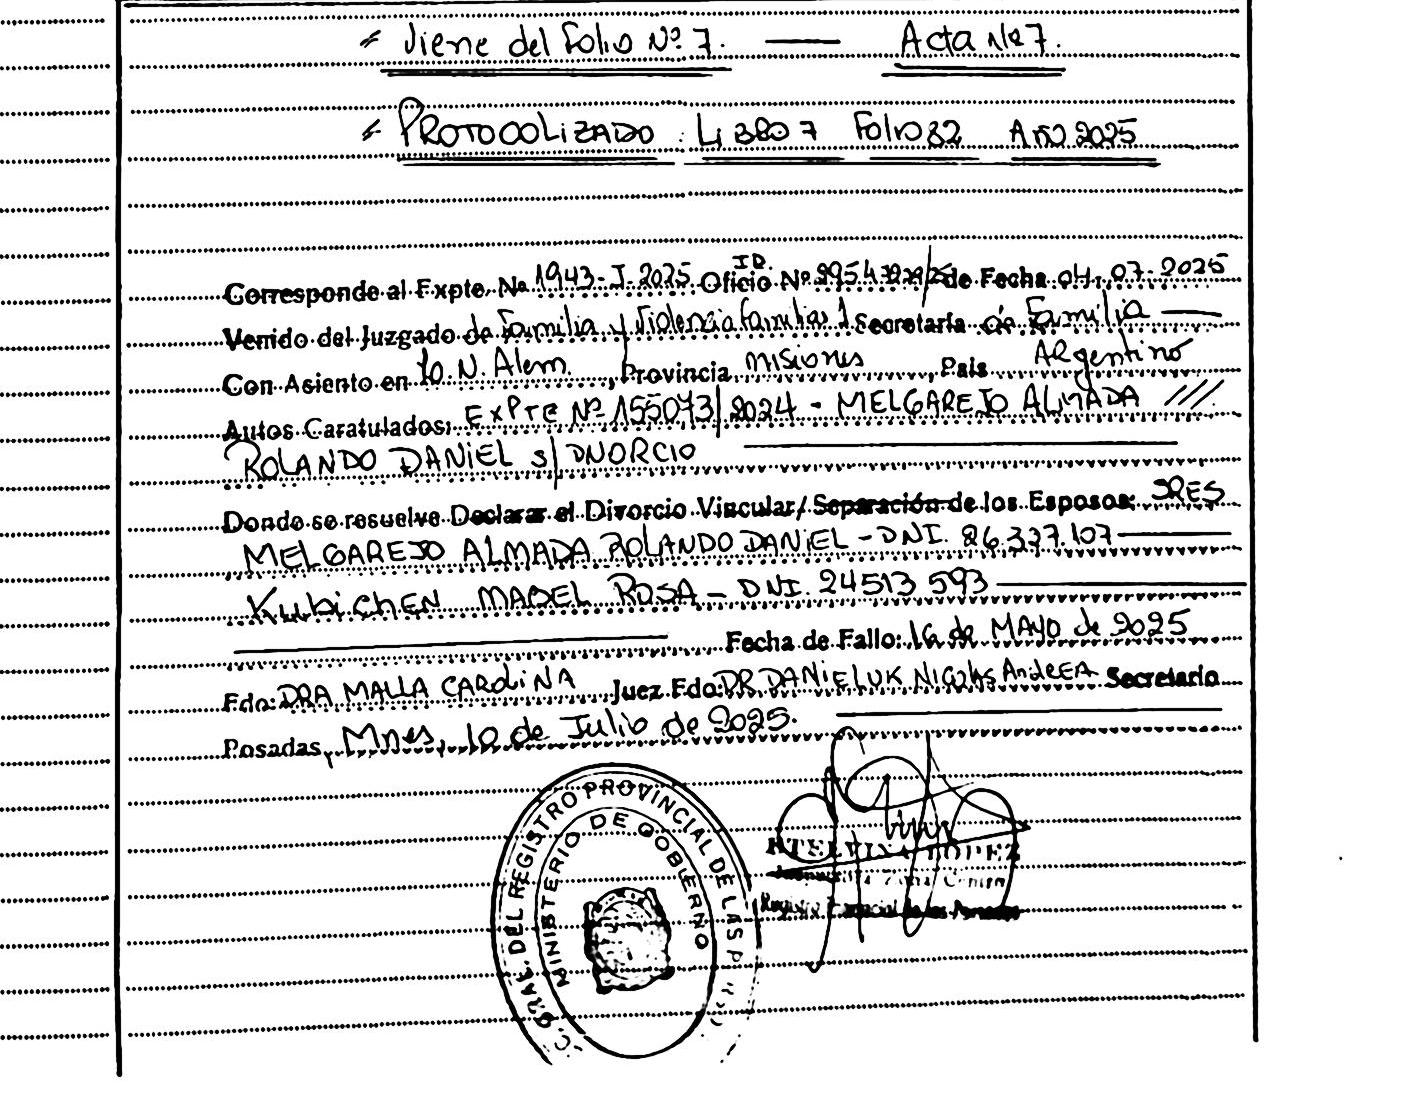 Viene del Folio Nº 7. — Acta Nº 7.
PROTOCOLIZADO LIBRO 7 Folio 32 Año 2025
ID.
Corresponde al Expte. Nº 1943-J-2025 Oficio Nº de Fecha 04-07-2025
Venido del Juzgado de Familia y Violencia familiar 1 Secretaría de Familia —
Con Asiento en N. Alem. Provincia Misiones Pais Argentino
Autos Caratulados: Expte Nº 155073/2024 - MELGAREJO ALMADA ///
ROLANDO DANIEL s/ DIVORCIO
Donde se resuelve Declarar el Divorcio Vincular/ Separación de los Esposos: SRES
MELGAREJO ALMADA ROLANDO DANIEL - DNI. 26.327.107 —
Kubichen MABEL ROSA - DNI. 24513 593 —
Fecha de Fallo: 16 de MAYO de 2025
Fdo: DRA MALLA CAROLINA Juez Fdo: DR DANIELUK NICOLAS AndREA Secretario
Posadas, Mnes, 10 de Julio de 2025.
GRAL. DEL REGISTRO PROVINCIAL DE LAS
MINISTERIO DE GOBIERNO
ETELVINA LOPEZ
Registro Provincial de las Personas